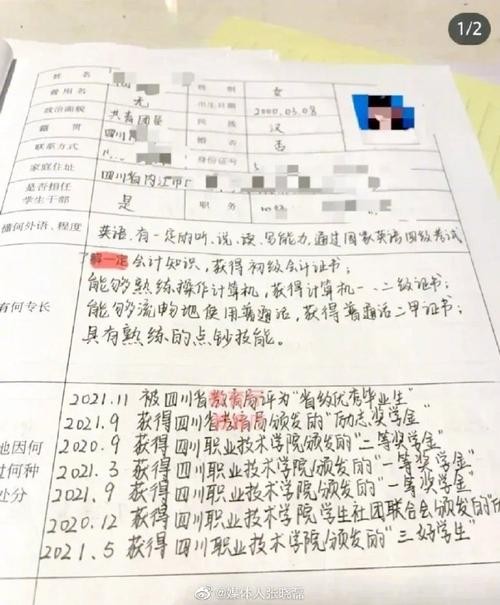 1/2
姓名 性别 女
曾用名 无 出生日期 2000.03.08
政治面貌 共青团员 民族 汉
籍贯 四川 婚否 否
联系方式 身份证号
家庭住址 四川省内江市
是否担任学生干部 是 职务
懂何外语、程度 英语,有一定的听、说、读、写能力,通过国家英语四级考试
有何专长 了解一定会计知识,获得初级会计证书;
能够熟练操作计算机,获得计算机一、二级证书;
能够流畅地使用普通话,获得普通话二甲证书;
具有熟练的点钞技能。
地因何
何种
处分
2021.11 被四川省教育局评为"省级优秀毕业生"
2021.9 获得四川省教育局颁发的"励志奖学金"
2020.9 获得四川职业技术学院颁发的"二等奖学金"
2021.3 获得四川职业技术学院颁发的"一等奖学金"
2021.9 获得四川职业技术学院颁发的"一等奖学金"
2020.12 获得四川职业技术学院学生社团联合会颁发的"
2021.5 获得四川职业技术学院颁发的"三好学生"
@媒体人张晓磊